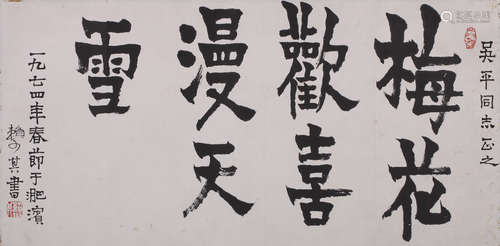 吴平同志正之
梅花
歡喜
漫天
雪
一九七四年春節于淝濱
其書